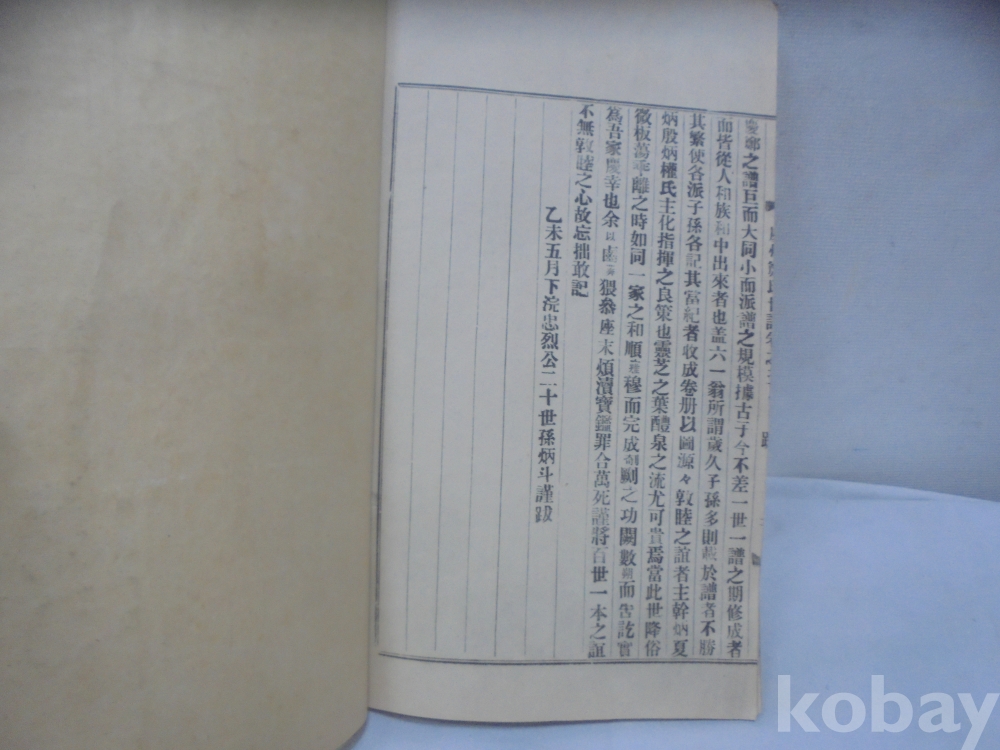 慶鄭之譜巨而大同小而派譜之規模據古于今不差一世一譜之期修成者
而皆從人和族和中出來者也盖六一翁所謂歲久子孫多則載於譜者不勝
其繁使各派子孫各記其當紀者收成卷册以圖源々敦睦之誼者主幹炳夏
炳殷炳權氏主化指揮之良策也靈芝之葉醴泉之流尤可貴爲當此世降俗
微板萬乖離之時如同一家之和順雍穆而完成剞劂之功閱數朔而告訖實
為吾家慶幸也余以鹵莽猥叅座末煩瀆寶鑑罪合萬死謹將百世一本之誼
不無敦睦之心故忘拙敢記
乙未五月下浣忠烈公二十世孫炳斗謹跋
kobay